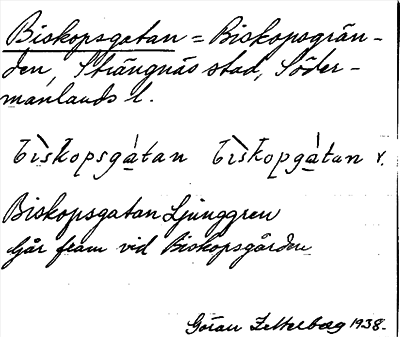 Biskopsgatan = Biskopsgrän-
den, Strängnäs stad, Söder-
manlands l.
bìskopsgátan bìskopgátan r.
Biskopsgatan Ljunggren
Går fram vid Biskopsgården
Göran Zetterberg 1938.